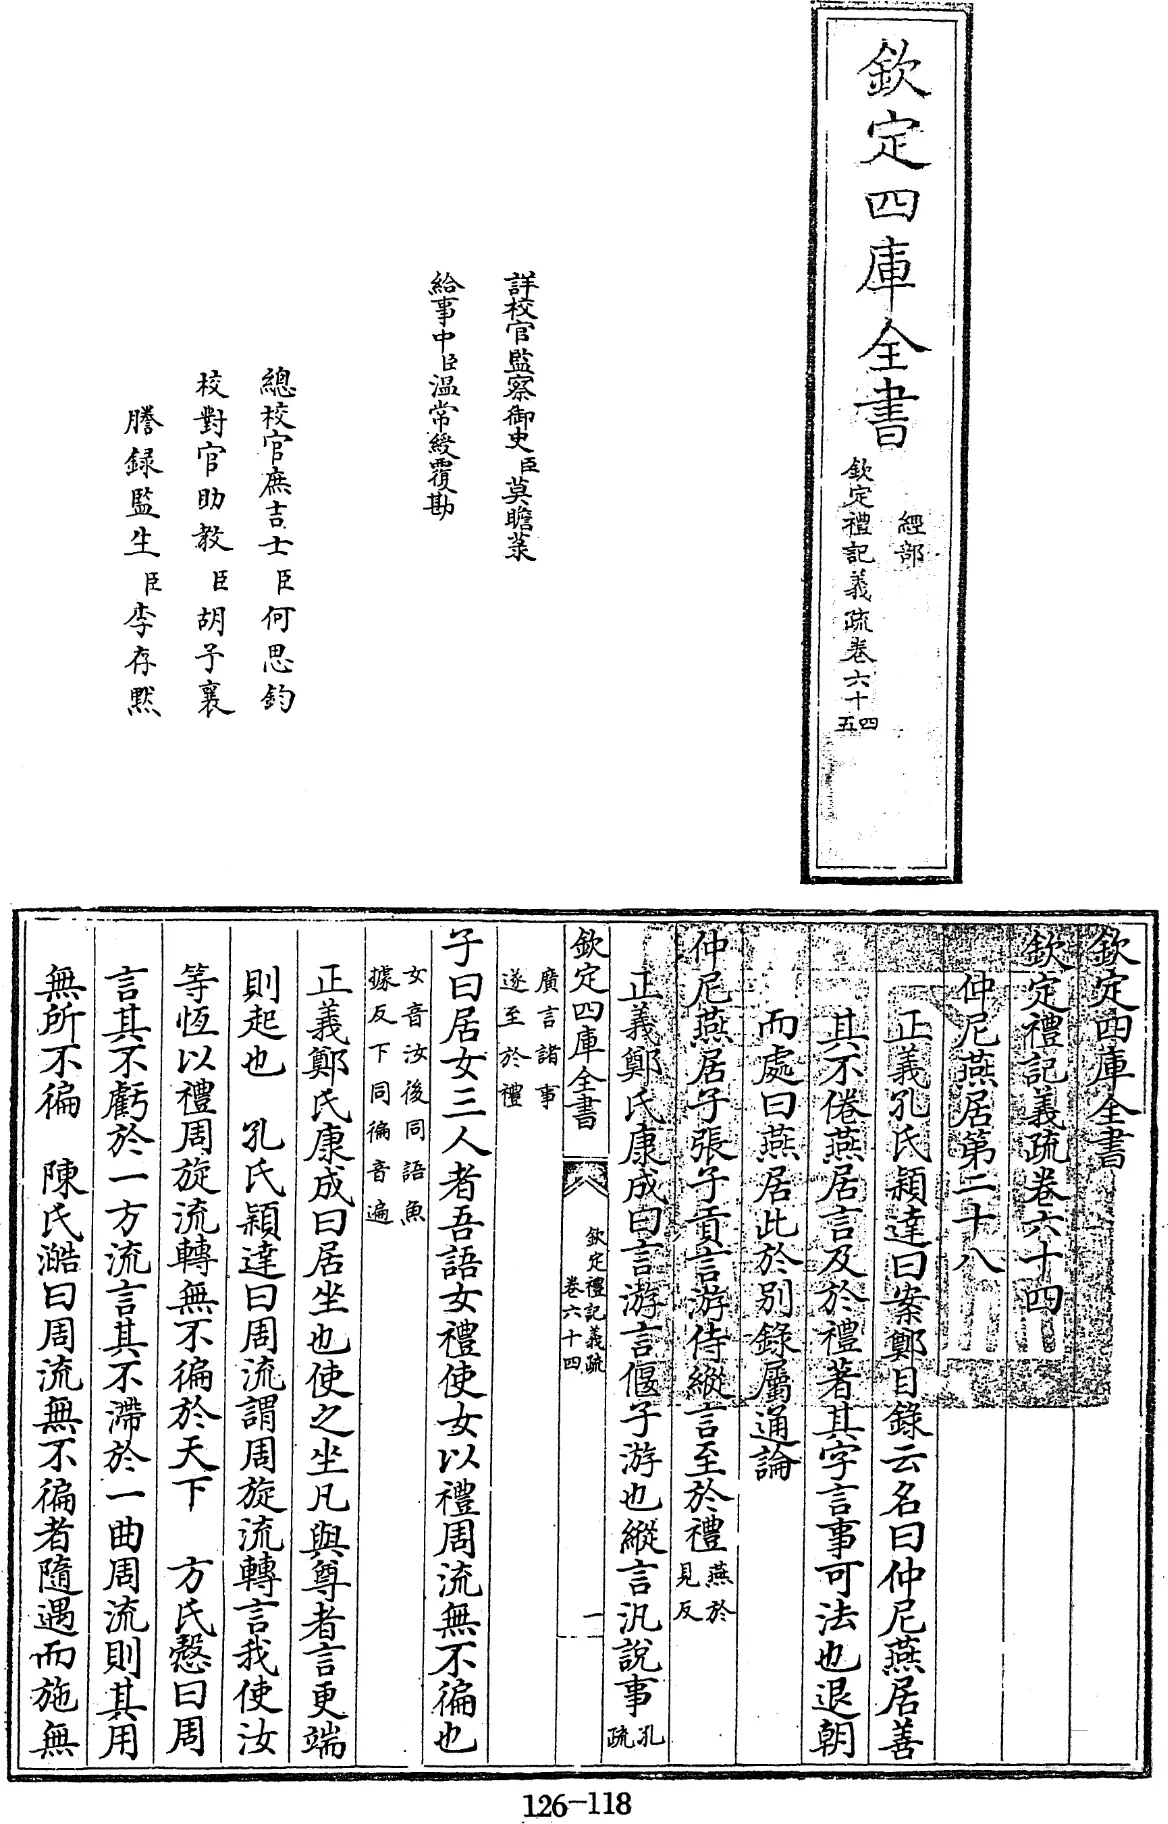 欽定四庫全書
經部
欽定禮記義疏卷六十四
五
詳校官監察御史臣莫瞻菉
給事中臣溫常綬覆勘
總校官庶吉士臣何思鈞
校對官助教臣胡予襄
謄錄監生臣李存默
欽定四庫全書
欽定禮記義疏卷六十四
仲尼燕居第二十八
正義孔氏穎達曰案鄭目錄云名曰仲尼燕居善
其不倦燕居言及於禮著其字言事可法也退朝
而處曰燕居此於別錄屬通論
仲尼燕居子張子貢言游侍縱言至於禮燕於
見反
正義鄭氏康成曰言游言偃子游也縱言汎說事孔
疏
欽定四庫全書
欽定禮記義疏
卷六十四
一
廣言諸事
遂至於禮
子曰居女三人者吾語女禮使女以禮周流無不徧也
女音汝後同語魚
據反下同徧音遍
正義鄭氏康成曰居坐也使之坐凡與尊者言更端
則起也 孔氏穎達曰周流謂周旋流轉言我使汝
等恆以禮周旋流轉無不徧於天下 方氏慤曰周
言其不虧於一方流言其不滯於一曲周流則其用
無所不徧 陳氏澔曰周流無不徧者隨遇而施無
126-118